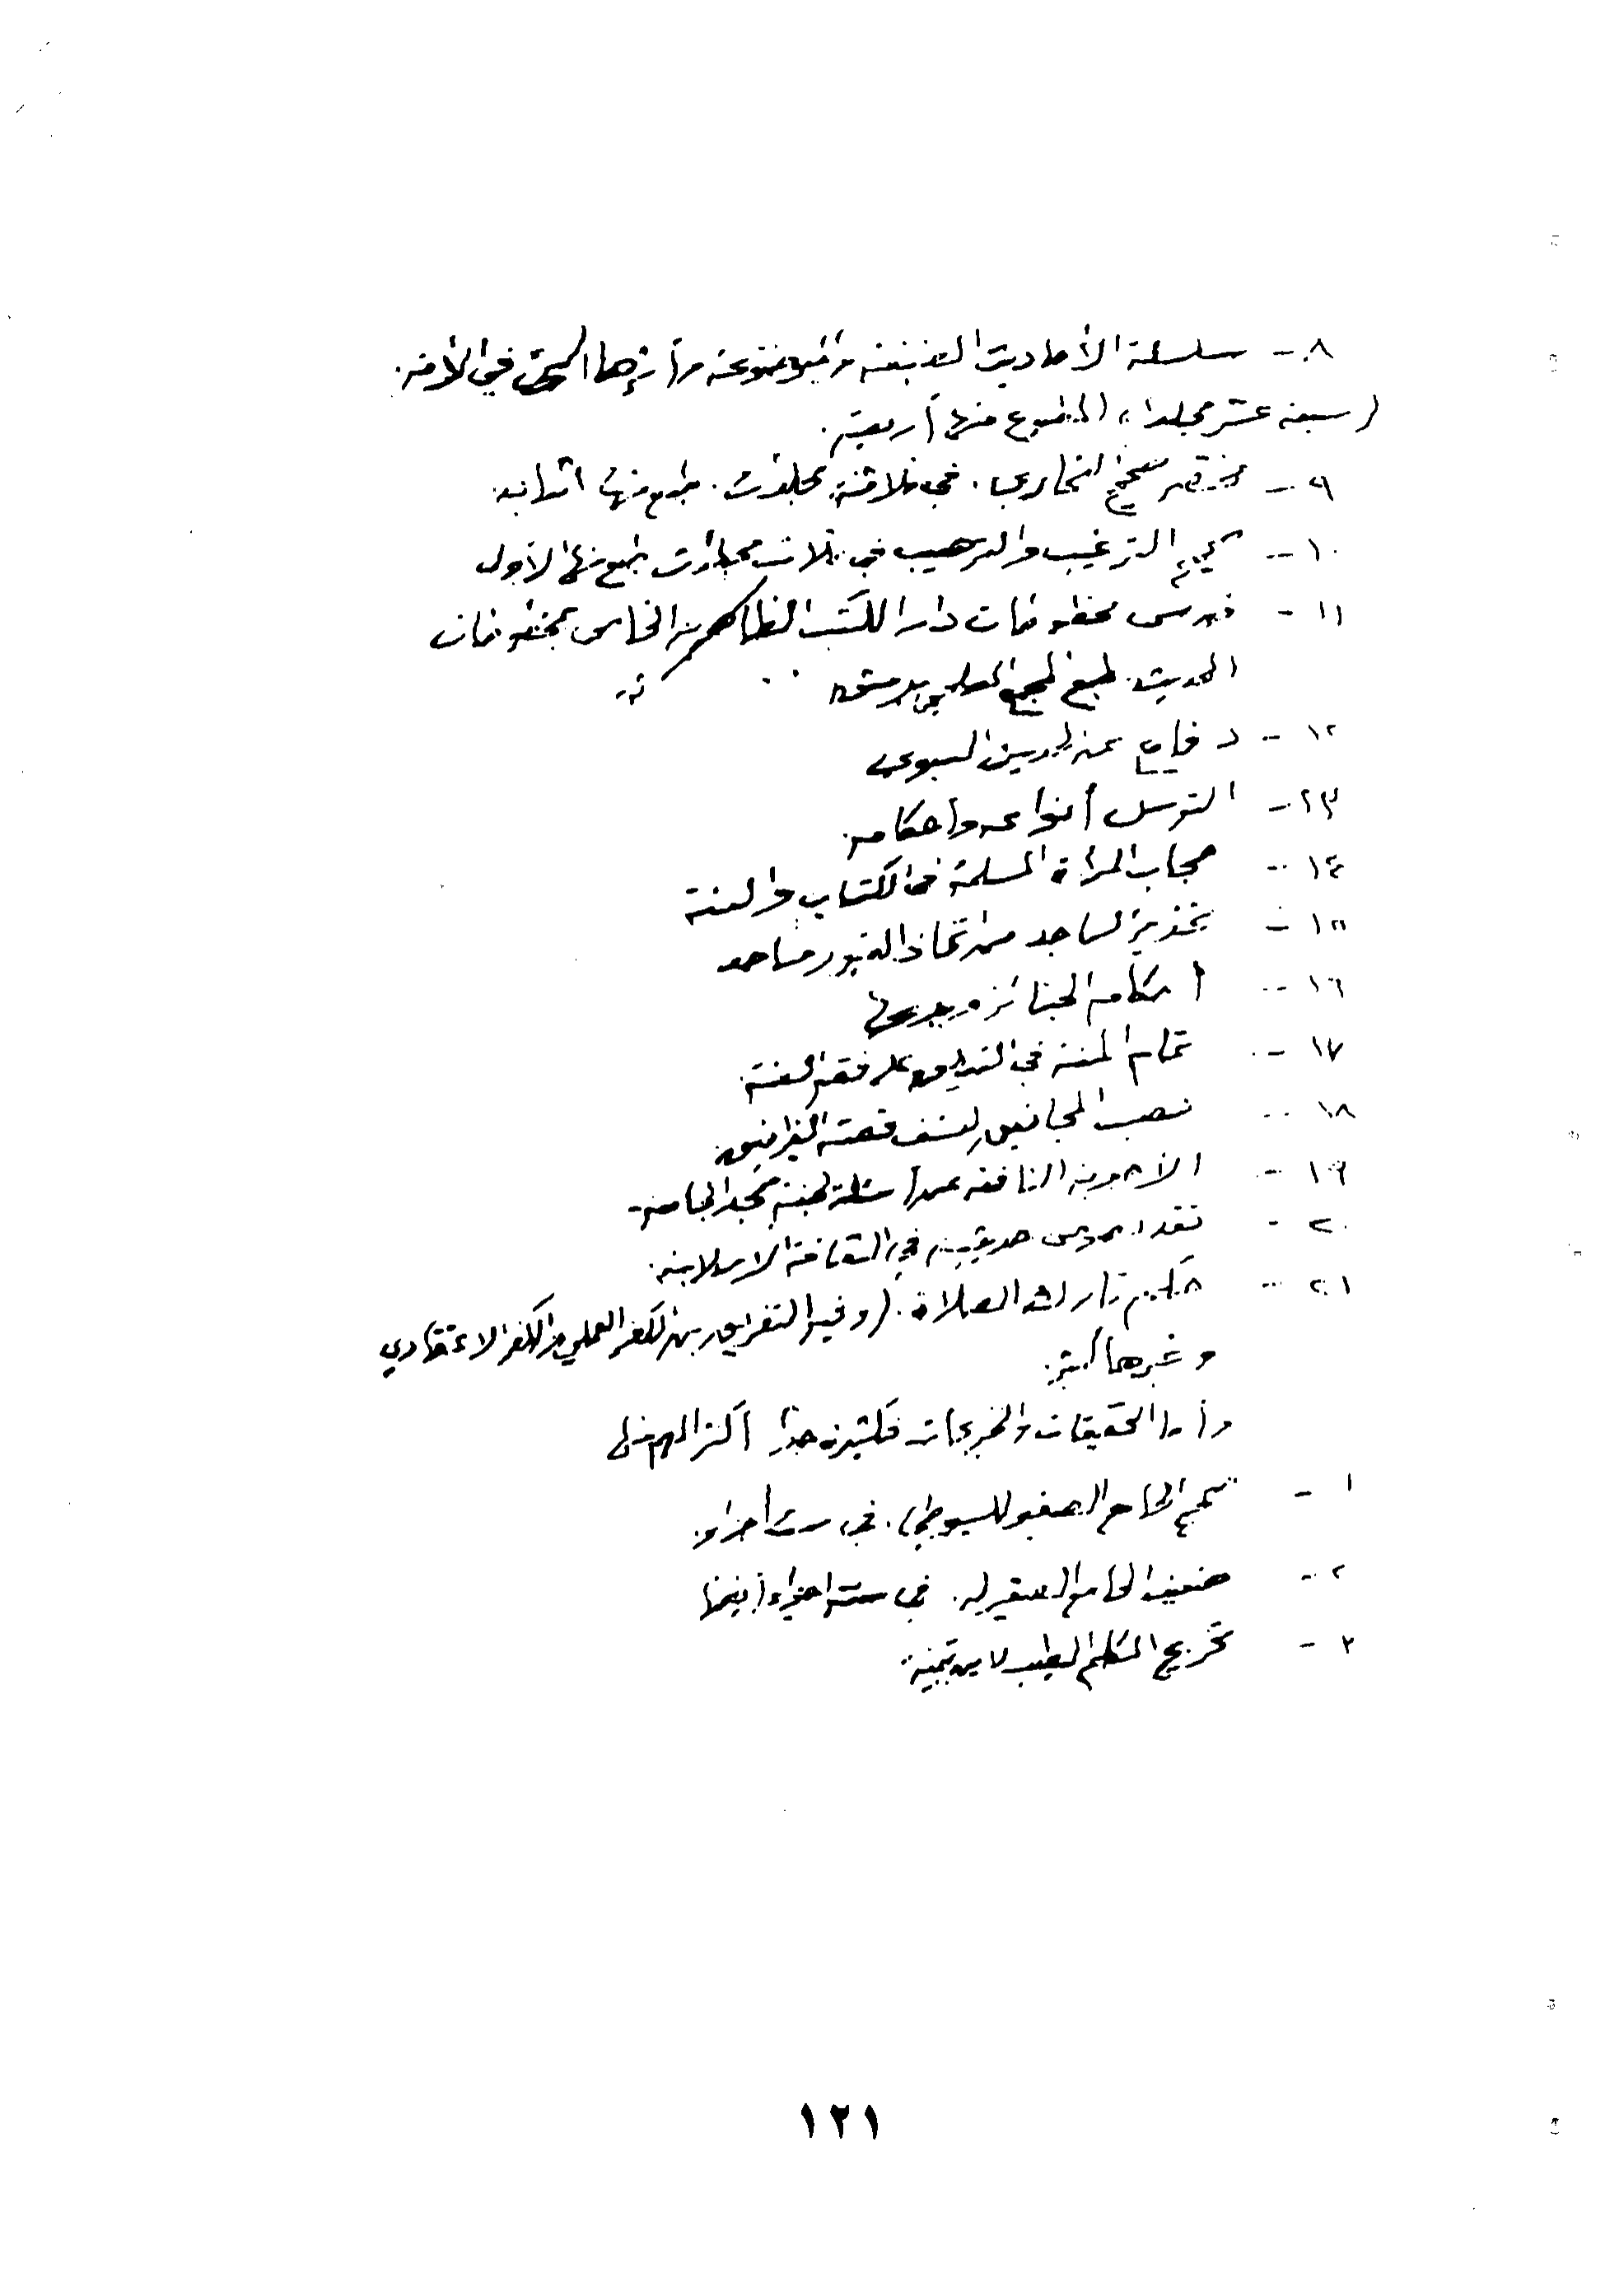 ٨ - سلسلة الأحاديث الضعيفة والموضوعة وأثرها السيئ في الأمة.
(سبعة عشر مجلدا، المطبوع منها أربعة.
٩ - مختصر صحيح البخاري. في ثلاثة مجلدات. طبع منها اثنان.
١٠ - صحيح الترغيب والترهيب في ثلاث مجلدات طبع منها الأول
١١ - فهرس مخطوطات دار الكتب الظاهرية الخاص بمخطوطات
الحديث. طبع المجمع العلمي بدمشق
١٢ - دفاع عن الحديث النبوي
١٣ - التوسل أنواعه وأحكامه
١٤ - حجاب المرأة المسلمة في الكتاب والسنة
١٥ - تحذير الساجد من اتخاذ القبور مساجد
١٦ - أحكام الجنائز وبدعها
١٧ - تمام المنة في التعليق على فقه السنة
١٨ - نصب المجانيق لنسف قصة الغرانيق
١٩ - الأجوبة النافعة عن أسئلة لجنة مسجد الجامعة
٢٠ - نقد نصوص حديثية في الثقافة الإسلامية.
٢١ - حكم تارك الصلاة. (وفيه التفريق بين الكفر العملي والكفر الاعتقادي
وغيرها كثير.
وأما التحقيقات والتخريجات فكثيرة جدا أكثر
١ - صحيح الجامع الصغير للسيوطي. في ستة أجزاء
٢ - ضعيف الجامع الصغير له. في ستة أجزاء أيضا
٣ - تخريج الكلم الطيب لابن تيمية.
١٢١